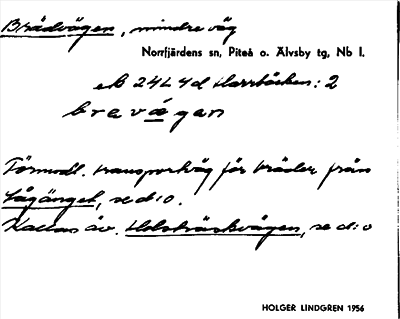 Brädvägen, mindre väg
Norrfjärdens sn, Piteå o. Älvsby tg, Nb l.
ek 24L4d Harrbäcken: 2
brevägen
Förmodl. transportväg för bräder från
Sågänget, se d:o.
Kallas äv. Holsträskvägen, se d:o
HOLGER LINDGREN 1956